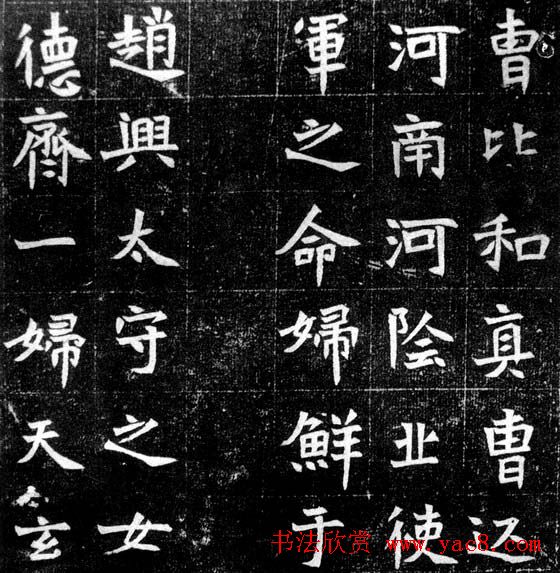 曹比和真曹
河南河陰北使
軍之命婦鮮于
趙興太守之女
德齊一婦天玄
书法欣赏 www.yac8.com